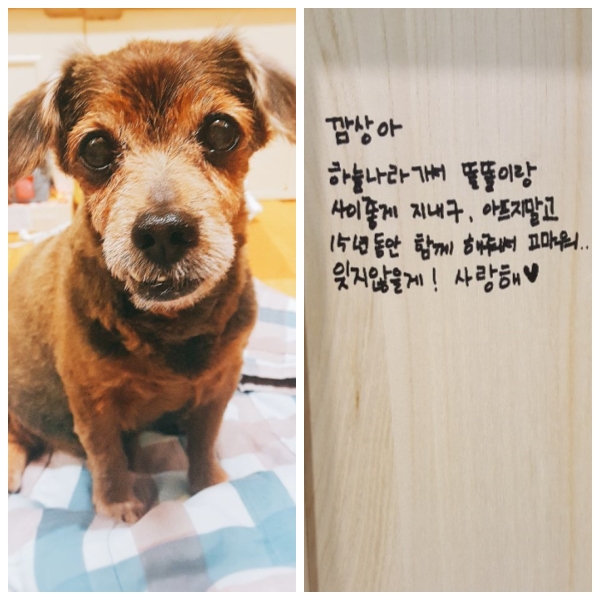 깜상아
하늘나라가서 똘똘이랑
사이좋게 지내구, 아프지말고
15년동안 함께 해줘서 고마워..
잊지않을게! 사랑해♥